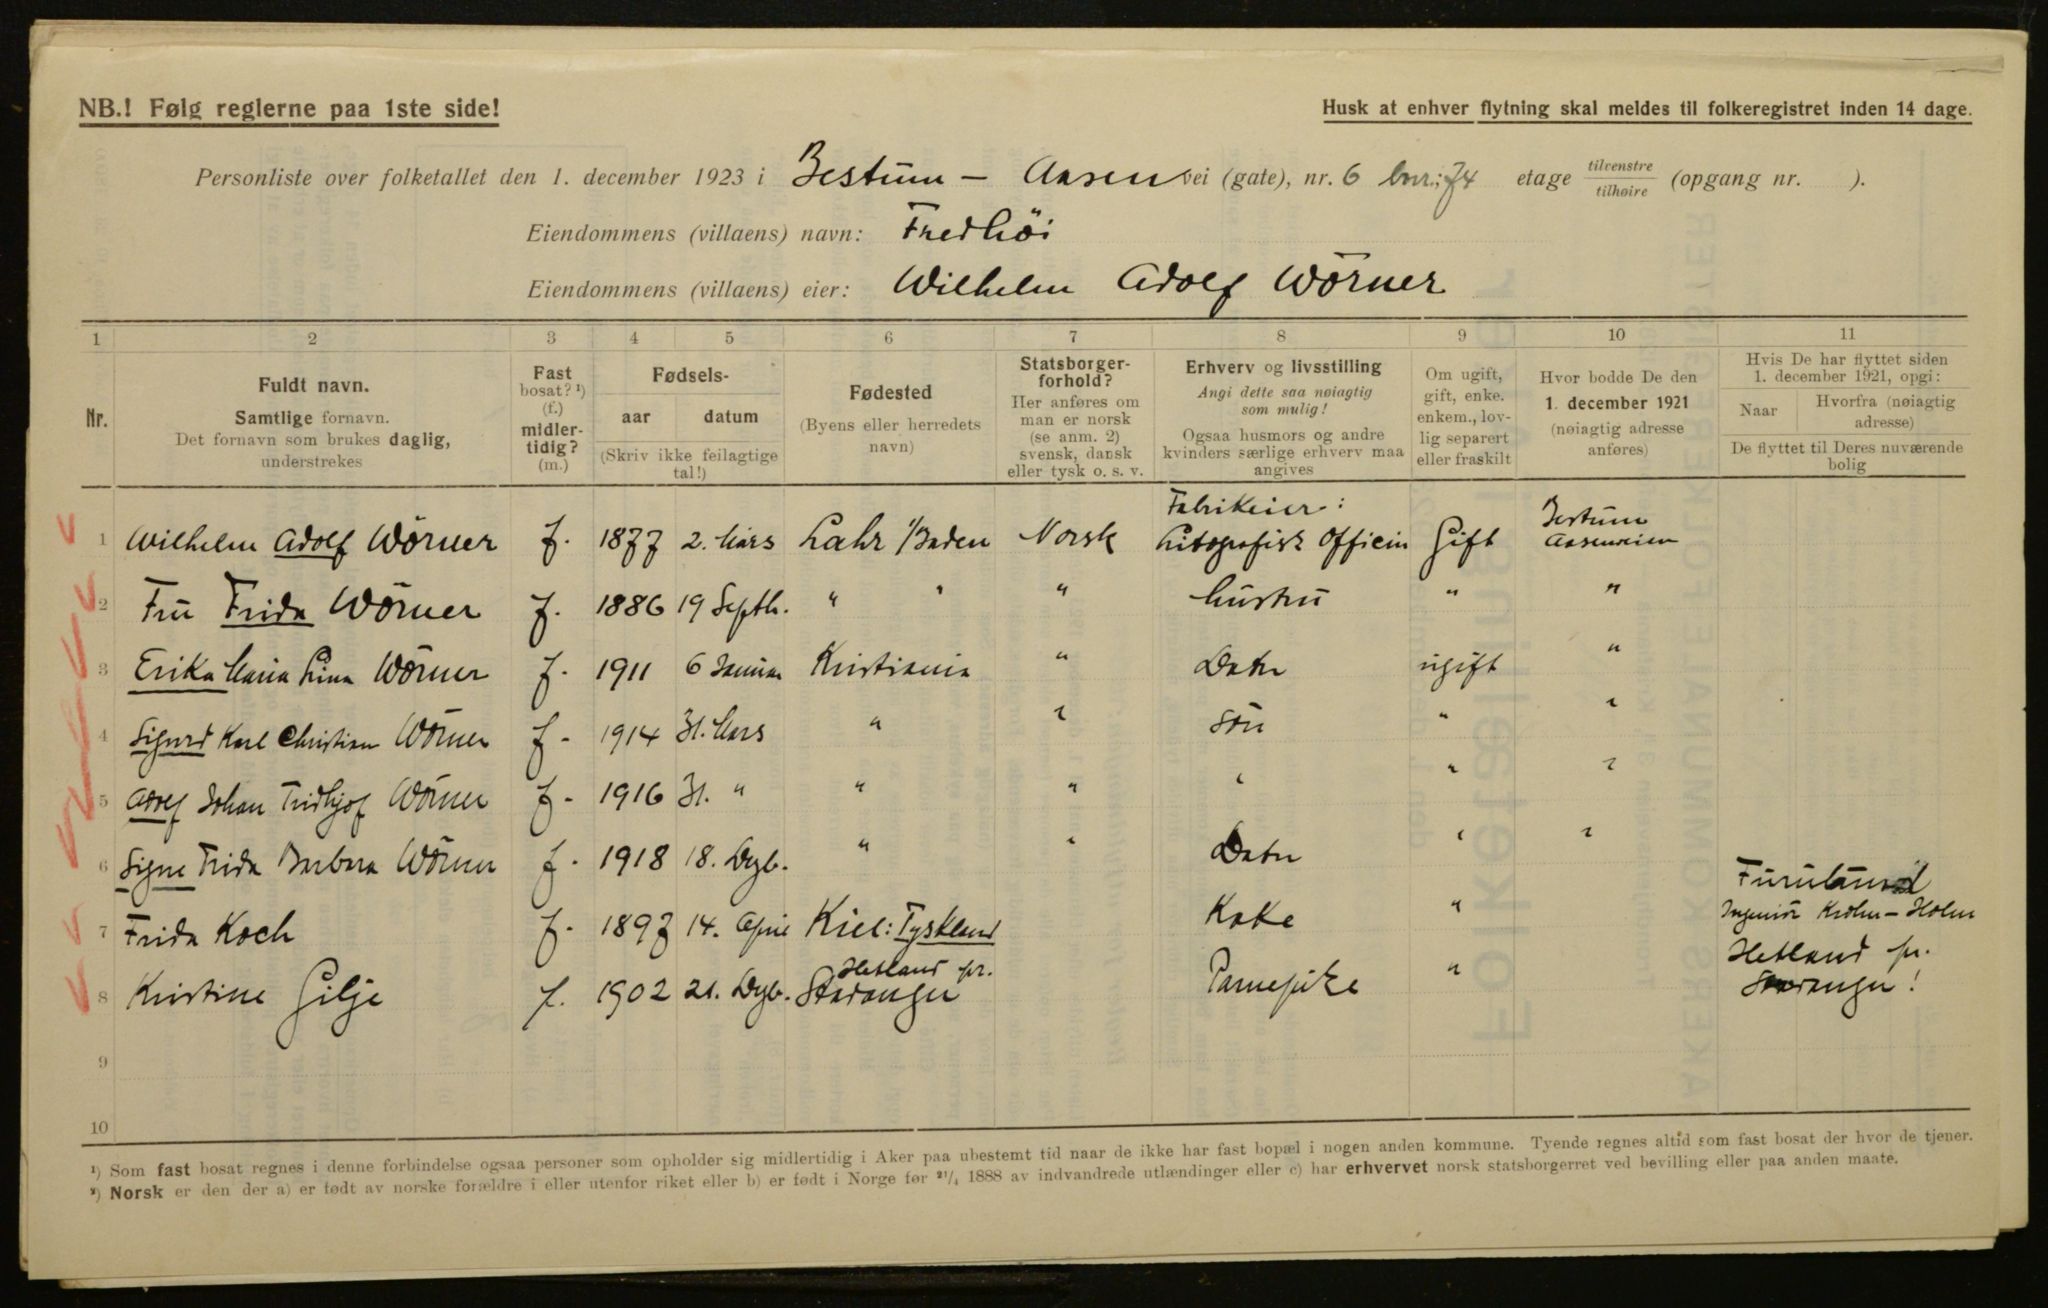 NB.! Følg reglerne paa 1ste side!
Husk at enhver flytning skal meldes til folkeregistret inden 14 dage.
Personliste over folketallet den 1. december 1923 i Bestum – Aasen vei (gate), nr. 6 bnr.; 74 etage tilvenstre tilhøire (opgang nr. ).
Eiendommens (villaens) navn: Fredhöi
Eiendommens (villaens) eier: Wilhelm Adolf Wörner
1 2 3 4 5 6 7 8 9 10 11
Nr.
Fuldt navn.
Samtlige fornavn.
Det fornavn som brukes daglig,
understrekes
Fast
bosat? ¹)
(f.)
midler-
tidig?
(m.)
Fødsels-
aar datum
(Skriv ikke feilagtige
tal!)
Fødested
(Byens eller herredets
navn)
Statsborger-
forhold?
Her anføres om
man er norsk
(se anm. 2)
svensk, dansk
eller tysk o. s. v.
Erhverv og livsstilling
Angi dette saa nøiagtig
som mulig!
Ogsaa husmors og andre
kvinders særlige erhverv maa
angives
Om ugift,
gift, enke.
enkem., lov-
lig separert
eller fraskilt
Hvor bodde De den
1. december 1921
(nøiagtig adresse
anføres)
Hvis De har flyttet siden
1. december 1921, opgi:
Naar
Hvorfra (nøiagtig
adresse)
De flyttet til Deres nuværende
bolig
Fabrikeier: Bestum
1 Wilhelm Adolf Wörner f. 1877 2. Mars Lahr i/Baden Norsk Litografisk Officin Gift Aasenveien
2 Fru Frida Wörner f. 1886 19 Septb. " " " Hustru " "
3 Erika Maria Lina Wörner f. 1911 6 Januar Kristiania " Datter ugift "
4 Sigurd Karl Christian Wörner f. 1914 31. Mars " " Sön " "
5 Adolf Johan Fridhjof Wörner f. 1916 31. " " " " " "
6 Signe Frida Barbara Wörner f. 1918 18. Dzb. " " Datter " "
Furulund
7 Frida Koch f. 1897 14. April Kiel: Tyskland Kokke " Ingeniör Krohn – Holm
Hetland pr. Hetland pr.
8 Kristine Gilje f. 1902 21. Dzb. Stavanger Barnepike " Stavanger!
9
10
¹) Som fast bosat regnes i denne forbindelse ogsaa personer som opholder sig midlertidig i Aker paa ubestemt tid naar de ikke har fast bopæl i nogen anden kommune. Tyende regnes altid som fast bosat der hvor de tjener.
²) Norsk er den der a) er født av norske forældre i eller utenfor riket eller b) er født i Norge før ²¹/₄ 1888 av indvandrede utlændinger eller c) har erhvervet norsk statsborgerret ved bevilling eller paa anden maate.